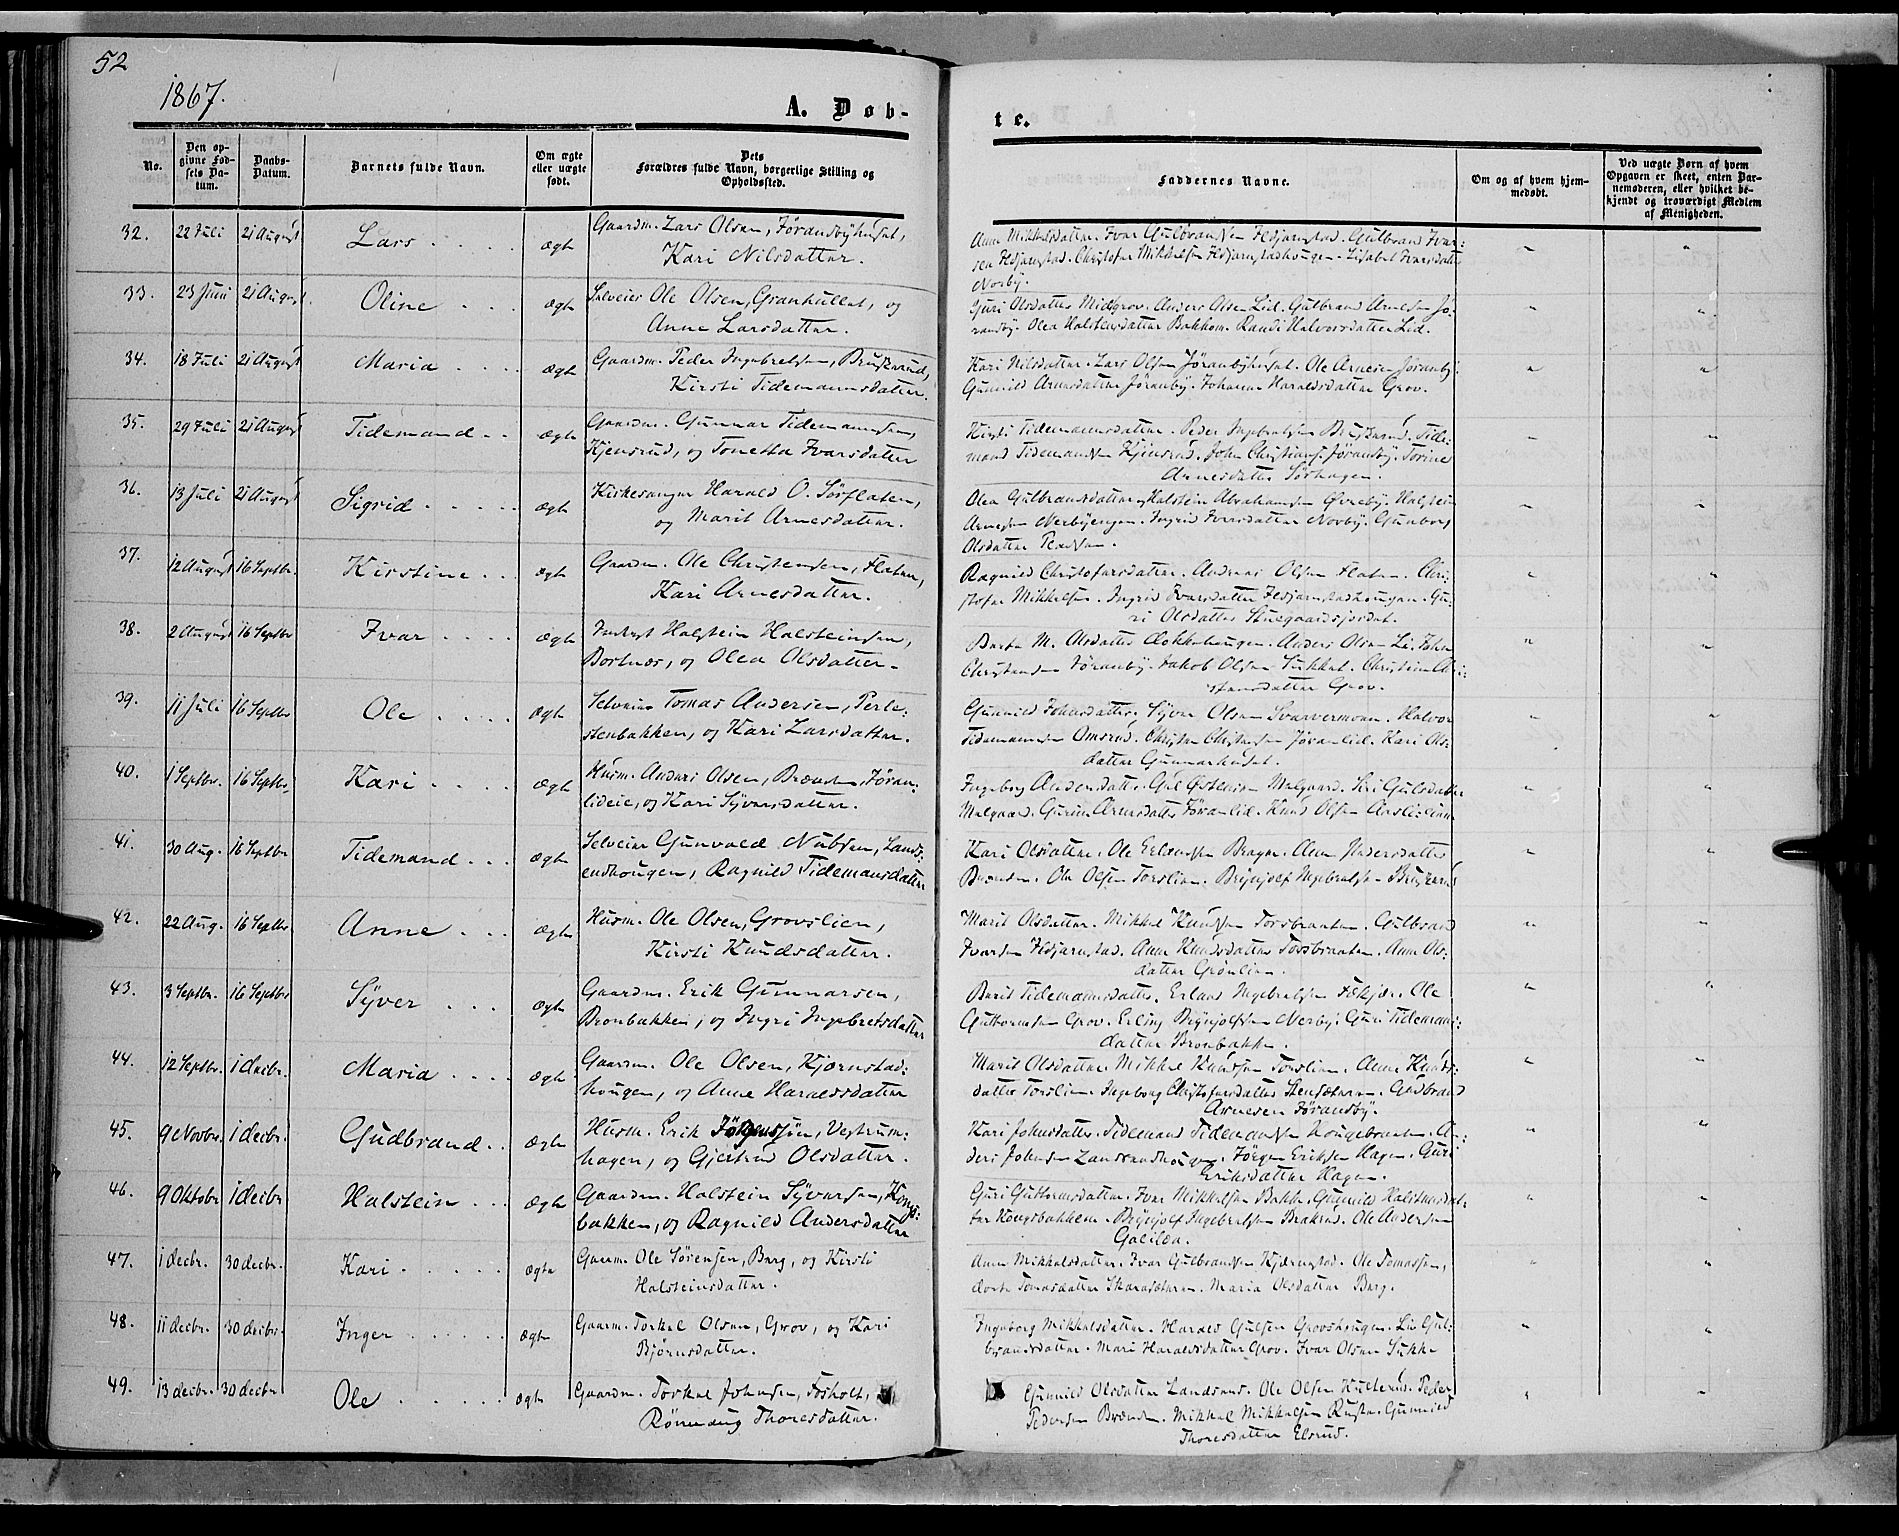 52
1867.
A. Døb-
te.
No.
Den op-
givne Fød-
sels Da-
tum.
Daabs-
Datum.
Barnets fulde Navn.
Om ægte
eller uægte
født.
Dets
Forældres fulde Navn, borgerlige Stilling og
Opholdssted.
Faddernes Navne.
Om og af hvem hjem-
medøbt.
Ved uægte Børn af hvem
Opgaven er skeet, enten Bar-
nemoderen, eller hvilket be-
kjendt og troværdigt Medlem
af Menigheden.
32. 22 Juli 21 August Lars ægte Gaardm. Lars Olsen, Jørandbyhuset,
Kari Nilsdatter.
Anne Mikkelsdatter. Ivar Gulbrandsen Kjærnstad. Gulbrand Ivar-
sen Kjærnstad. Christofer Mikkelsen Lisabet Ivarsdatter
Norby.
33. 23 Juni 21 August Oline ægte Selveier Ole Olsen, Granhullet, og
Anne Larsdatter.
Guri Olsdatter Midgrov. Anders Olsen Lid. Gulbrand Arnesen Jø-
randby. Olea Halstensdatter Bakkom. Randi Halvorsdatter Lid.
34. 18 Juli 21 August Maria ægte Gaardm. Peder Ingebretsen, Bruskerud,
Kirsti Tidemannsdatter.
Kari Nilsdatter. Lars Olsen Jøranbyhuset. Ole Arnesen Jøranby.
Gunild Arnesdatter Jøranby. Johanne Haraldsdatter Grov.
35. 29 Juli 21 August Tidemand ægte Gaardm. Gunnar Tidemannsen,
Kjensrud, og Tonetta Ivarsdatter
Kirsti Tidemannsdatter. Peder Ingebretsen Bruskerud. Tide-
mand Tidemandsen Kjensrud. John Christians. Jøranby. Torine
Arnesdatter Sørhagen.
36. 13 Juli 21 August Sigrid ægte Kirkesanger Harald O. Sørflaten,
og Marit Arnesdatter.
Olea Gulbransdatter, Halstein Abrahamsen Øvreby. Halstein
Arnesen Nerbyengen. Ingrid Ivarsdatter Norby. Gunbor
Olsdatter
37. 12 August 16 Septbr. Kirstine ægte Gaardm. Ole Christensen, Flaten,
Kari Arnesdatter.
Ragnild Christofersdatter. Andreas Olsen Flaten. Chri-
stofer Mikkelsen. Ingrid Ivarsdatter Gu-
ri Olsdatter
38. 2 August 16 Septbr Ivar ægte Halstein Halsteinsen,
Bortnæs, og Olea Olsdatter.
M. Olsdatter Anders Olsen Li. John
Christiansen Jøranby. Jakob Olsen Christine
Grov.
39. 11 Juli 16 Septbr Ole ægte Selveier Tomas Andersen, Perle-
stenbakken, og Kari Larsdatter.
Gunild Johnsdatter. Syver Olsen Svarvermoen. Halvor
Tidemannsen Omsrud. Christen Christensen Jøranlid. Kari Ols-
datter Gunnarhuset.
40. 1 Septbr. 16 Septbr. Kari ægte Husm. Anders Olsen, Brænden, Jøran-
lideie, og Kari Syversdatter.
Ingeborg Andersdatter. Gul Østensen Malgaard. Siri Gulsdatter
Malgaard. Gurine Arnesdatter Jøranlid. Knud Olsen
41. 30 Aug. 16 Septbr Tidemand ægte Selveier Gunvald Nubsen, Lands-
endhougen, Ragnild Tidemansdatter
Kari Olsdatter. Ole Erlandsen Brager. Anne Andersdatter
Brænden. Ole Olsen Torslien. Brynjolf Ingebretsen Bruskerud
42. 22 Aug. 16 Septbr Anne ægte Husm. Ole Olsen, Grovslien,
Kirsti Knudsdatter.
Marit Olsdatter. Mikkel Knudsen Torsbraaten. Gulbrand
Ivarsen Kjærnstad. Anne Knudsdatter Torsbraaten. Anne Ols-
datter Grønlien.
43. 3 Septbr. 16 Septbr Syver ægte Gaardm. Erik Gunnarsen,
Bronbakken, og Ingri Ingebretsdatter
Berit Tidemansdatter. Erland Ingebretsen Ole
Guttormsen Grov. Erling Brynjolfsen Nerby. Guri Tidemans-
datter Bronbakken.
44. 12 Septbr. 1 Decbr. Maria ægte Gaardm. Ole Olsen, Kjørnstad-
hougen, og Anne Haraldsdatter
Marit Olsdatter. Mikkel Knudsen Torslien. Anne Knuds-
datter Torslien. Ingeborg Christofersdatter Gudbrand
Arnesen Jøransby.
45. 9 Novbr. 1 Decbr. Gudbrand ægte Husm. Erik Jørgensen, Vestrum-
hagen, og Gjertrud Olsdatter.
Kari Johnsdatter. Tidemand Tidemandsen Hougebraaten. An-
ders Johnsen Landsendhougen. Jørgen Eriksen Hagen. Guri
Eriksdatter Hagen.
46. 9 Oktobr 1 Decbr Halstein ægte Gaardm. Halstein Syversen, Kongs-
bakken, og Ragnild Andersdatter
Guri Guttormsdatter. Ivar Mikkelsen Bakke. Gunild Halsteinsdat-
ter Kongsbakken. Brynjolf Ingebretsen Ole Andersen
Galilea.
47. 1 Decbr. 30 Decbr. Kari ægte Gaardm. Ole Sørensen, Berg, og Kirsti
Halsteinsdatter.
Anne Mikkelsdatter. Ivar Gulbrandsen Kjærnstad. Ole Tomassen,
Dorte Tomasdatter Maria Olsdatter Berg.
48. 11 Decbr. 30 Decbr. Inger ægte Gaardm. Torkel Olsen, Grov, og Kari
Bjørnsdatter.
Ingeborg Mikkelsdatter. Harald Gulsen Grovshougen. Liv Gul-
brandsdatter. Mari Haraldsdatter Grov. Ivar Olsen
49. 13 Decbr. 30 Decbr Ole ægte Gaardm. Torkel Johnsen, Fosholt,
Rønnaug Thoresdatter.
Gunild Olsdatter Landsend. Ole Olsen Peder
Pedersen Brænden. Mikkel Mikkelsen Rusta. Gunnild
Thoresdatter Elsrud.